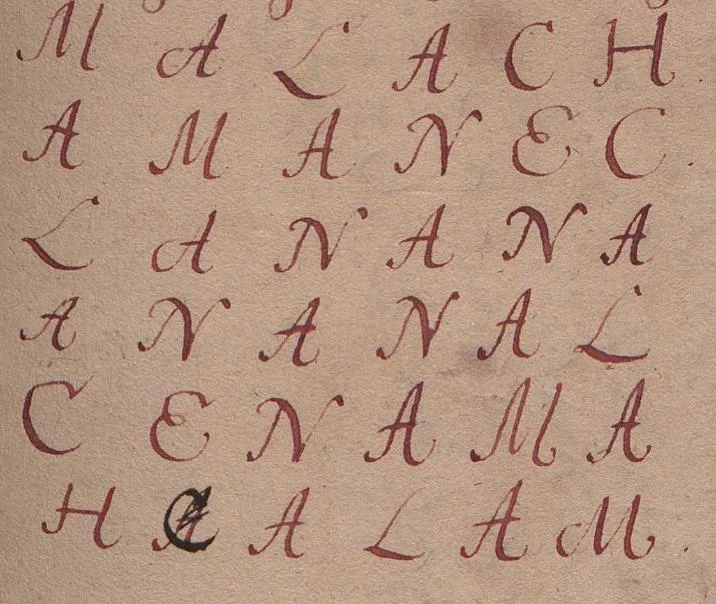 M A L A C H
A M A N E C
L A N A N A
A N A N A L
C E N A M A
H C A L A M.